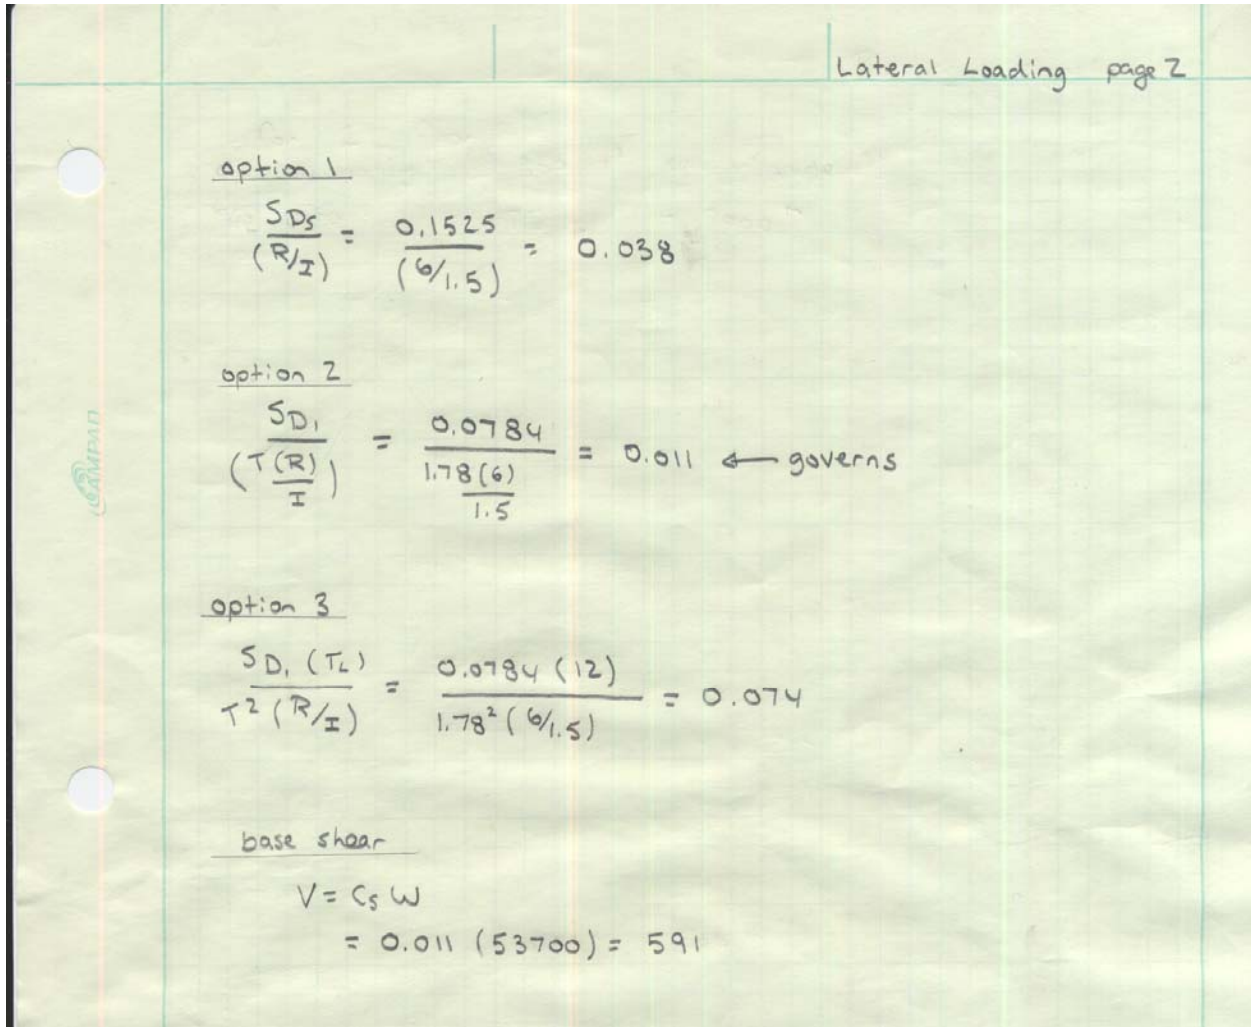 Lateral Loading page 2
option 1
SDS/(R/I) = 0.1525/(6/1.5) = 0.038
option 2
SD1/(T(R)/I) = 0.0784/(1.78(6)/1.5) = 0.011 ← governs
AMPAD
option 3
SD1(TL)/T²(R/I) = 0.0784(12)/1.78²(6/1.5) = 0.074
base shear
V = CsW
= 0.011 (53700) = 591